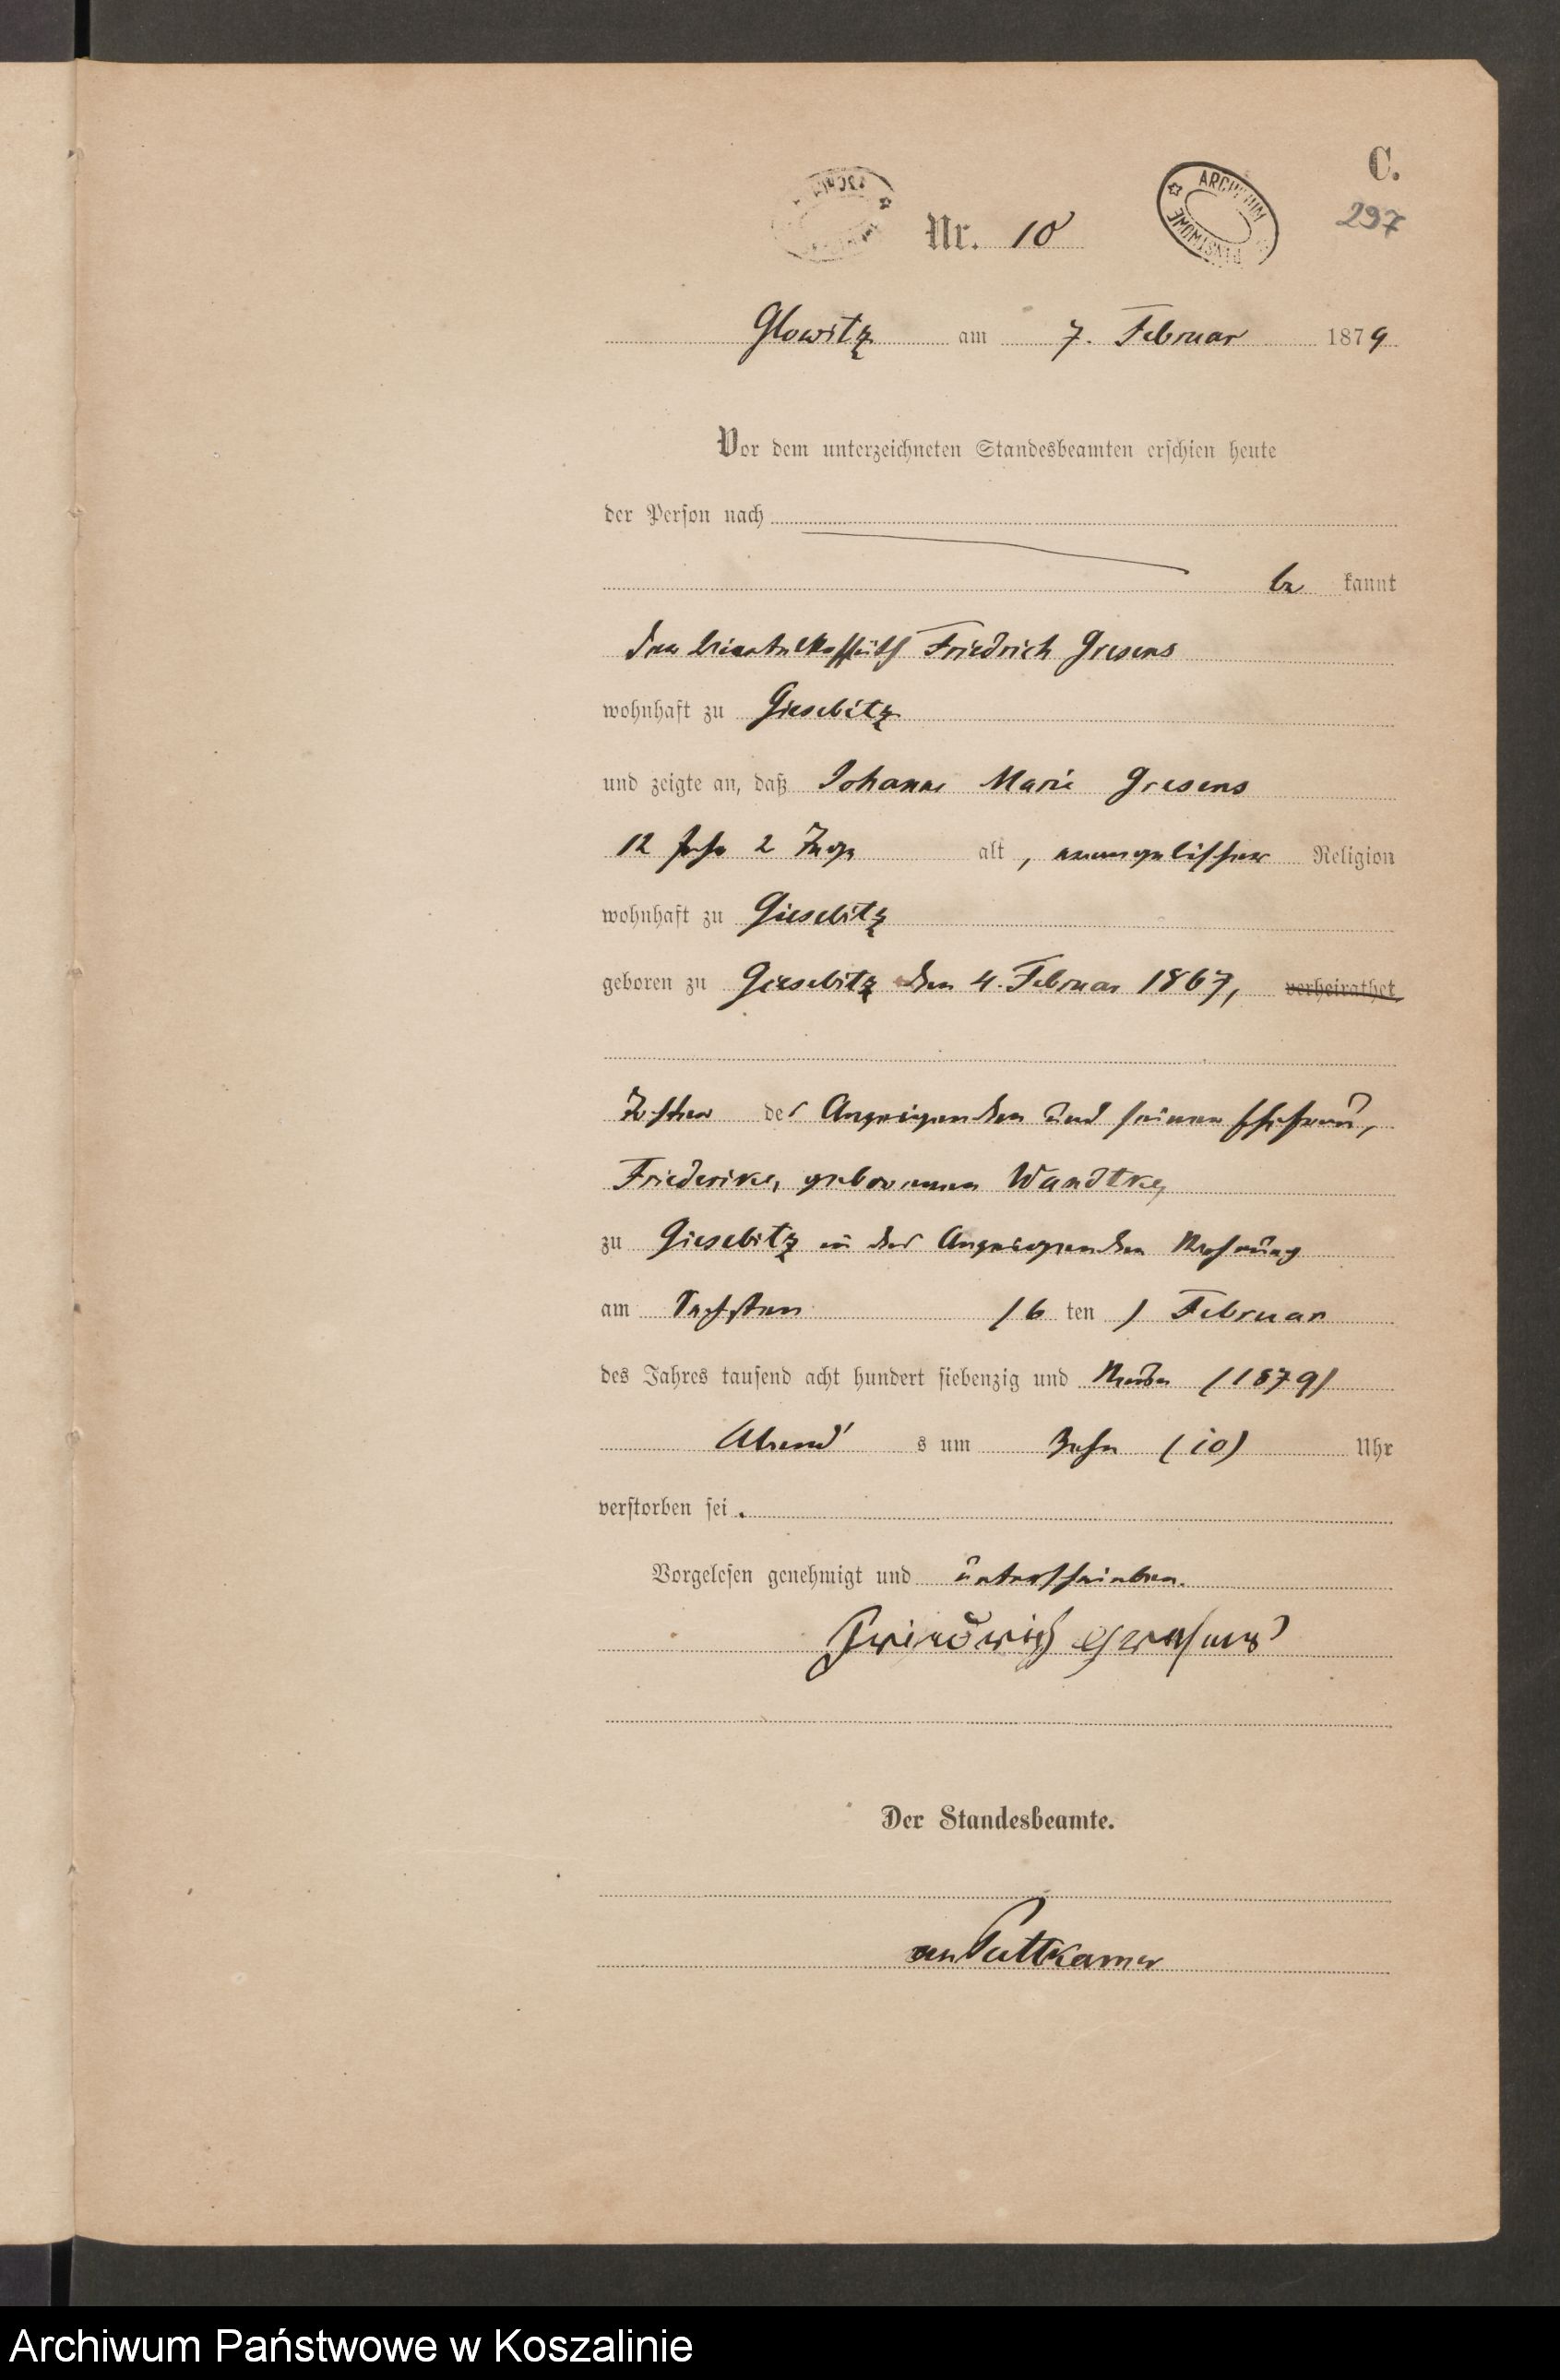 C.
297
ARCHIWUM PAŃSTWOWE
Nr. 10
Glowitz am 7. Februar 1879
Vor dem unterzeichneten Standesbeamten erschien heute
der Person nach
be kannt
der Friedrich Gresens
wohnhaft zu Giesebitz
und zeigte an, daß Johanne Marie Gresens
12 Jahr 2 Tage alt, evangelischer Religion
wohnhaft zu Giesebitz
geboren zu Giesebitz den 4. Februar 1867, verheirathet
Tochter des Anzeigenden und seiner Ehefrau,
Friederike, geborenen Wandtke,
zu Giesebitz in des Anzeigenden Wohnung
am Sechsten (6 ten) Februar
des Jahres tausend acht hundert siebenzig und Neun (1879)
Abend s um Zehn (10) Uhr
verstorben sei.
Vorgelesen genehmigt und unterschrieben.
Friedrich Gresens
Der Standesbeamte.
von Puttkamer
Archiwum Państwowe w Koszalinie